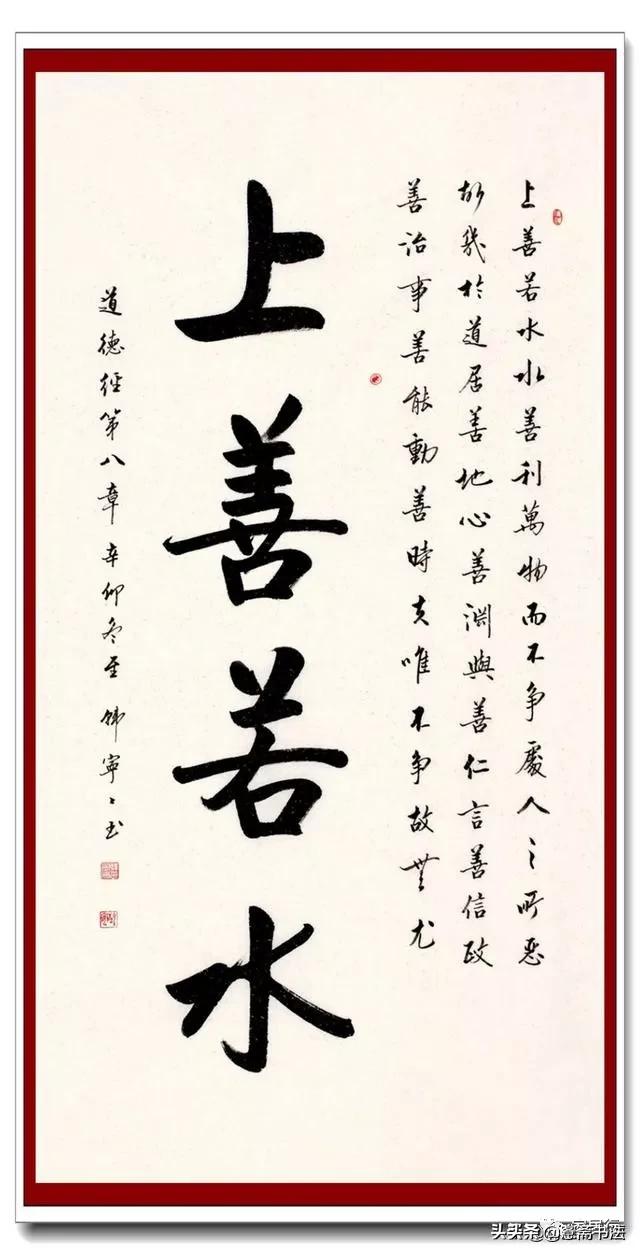 上善若水水善利萬物而不争處人之所惡
故幾於道居善地心善淵與善仁言善信政
善治事善能動善時夫唯不争故無尤
上善若水
道德經第八章 辛卯冬至 韩寧寧书
头条 书法